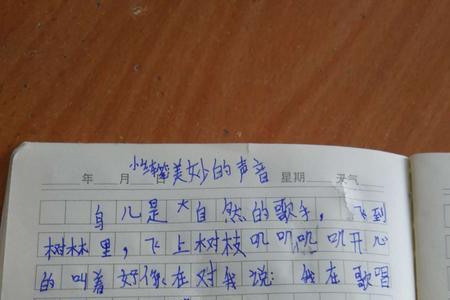 小练笔美妙的声音
年 月 日 星期 天气
鸟儿是大自然的歌手，飞到
树林里，飞上树枝叽叽叽叽开心
的叫着好像在对我说：我在歌唱